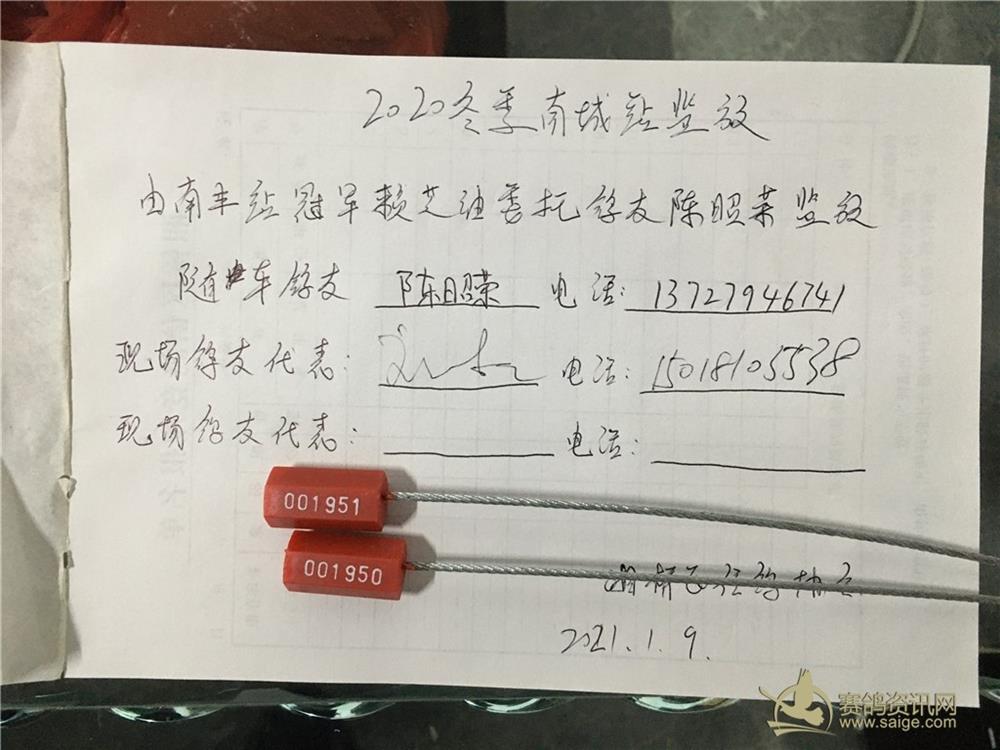 2020冬季南城站监放
由南丰站冠军赖芝迪委托鸽友陈昭荣监放
随车鸽友 陈昭荣 电话: 13727946741
现场鸽友代表: 电话: 15018105538
现场鸽友代表: 电话:
001951
001950
信鸽协会
2021.1.9.
赛鸽资讯网
www.saige.com